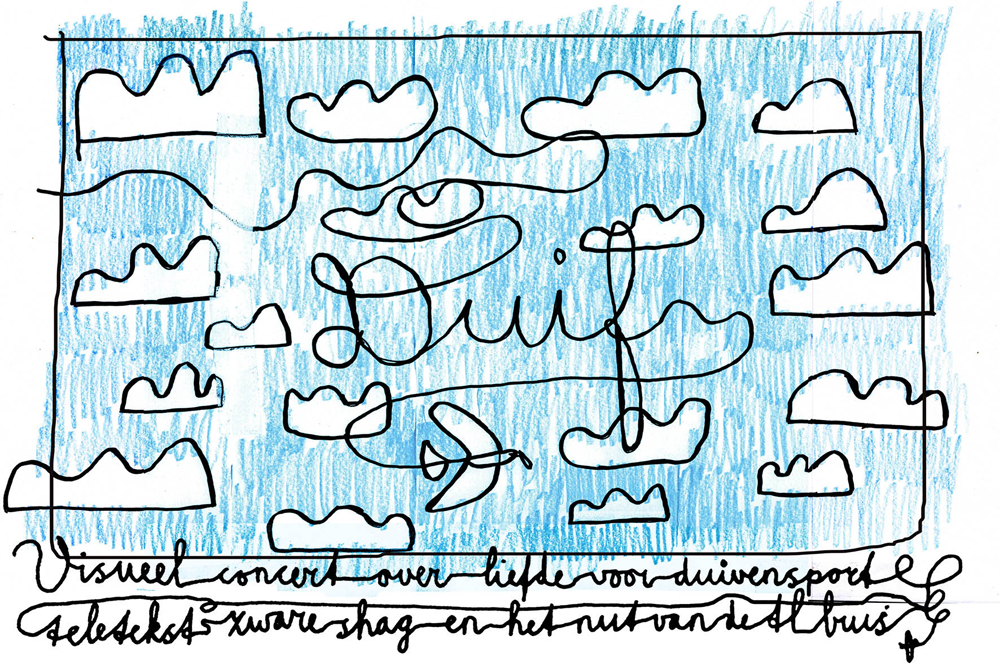 Duif
Visueel concert over liefde voor duivensport
teletekst xware shag en het nut van de tl buis